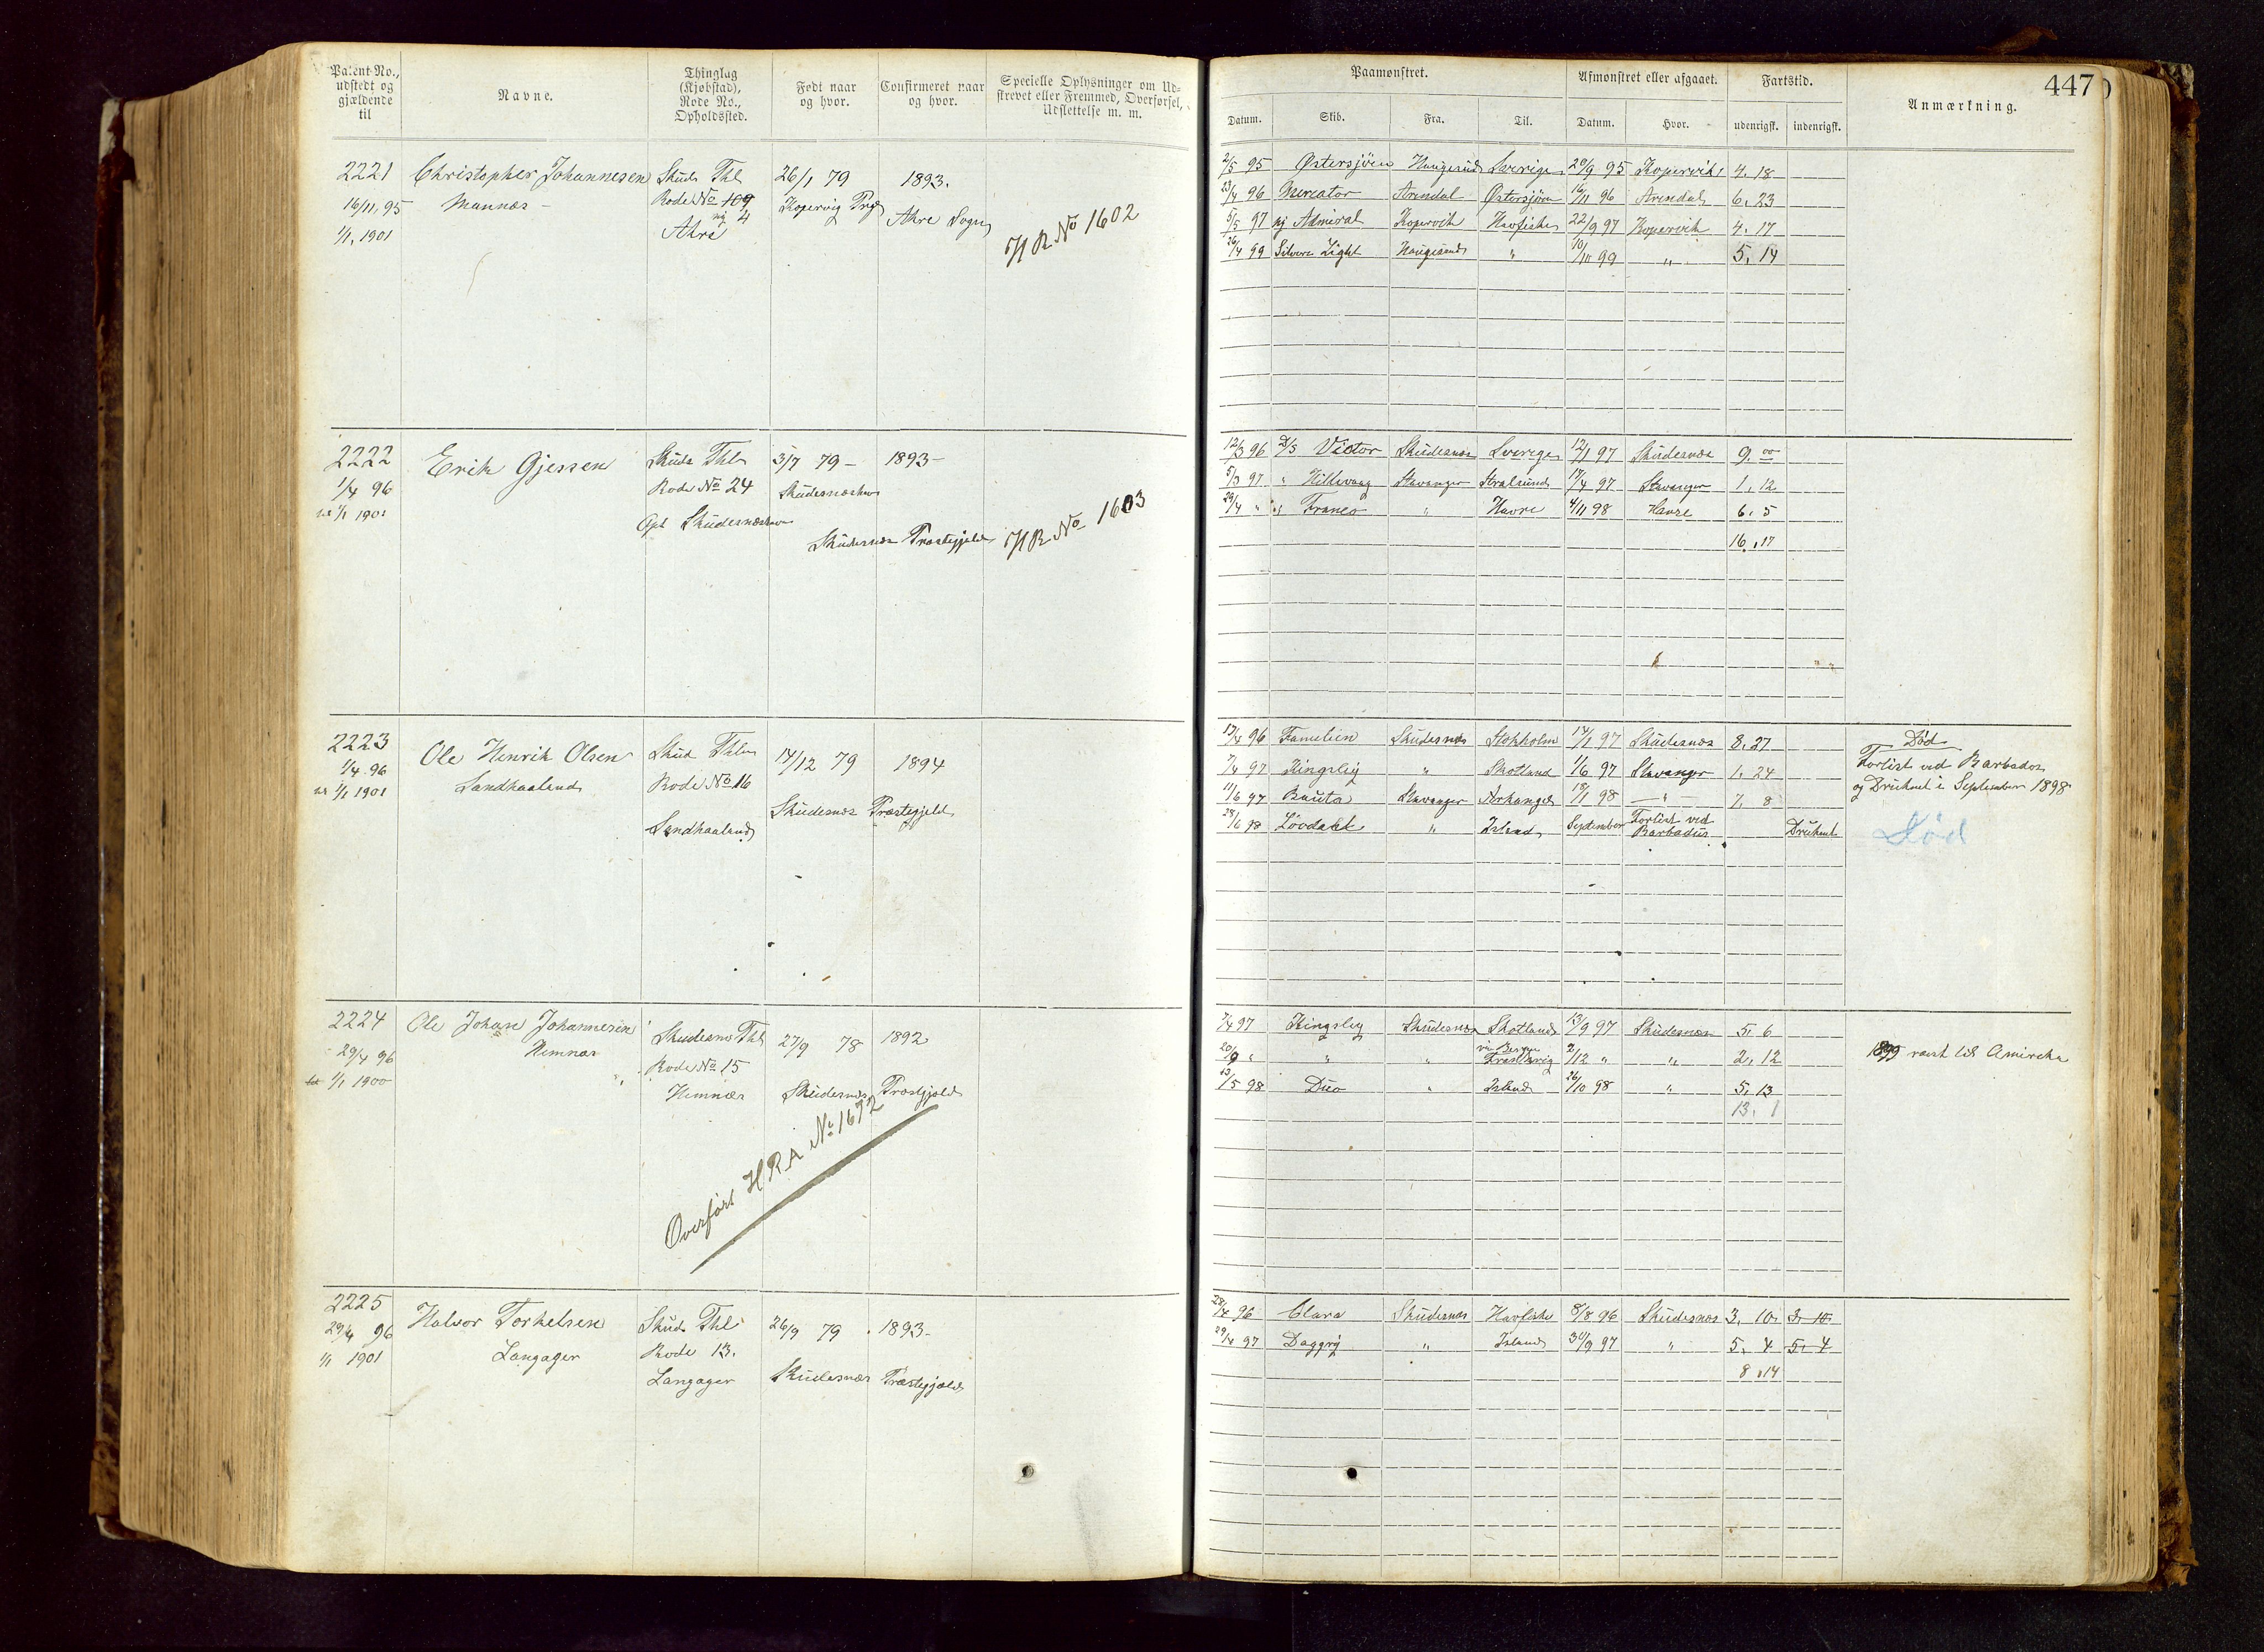 Patent-No., udstedt og gjældende til
Navne.
Thinglag (Kjøbstad), Rode No., Opholdssted.
Født naar og hvor.
Confirmeret naar og hvor.
Specielle Oplysninger om Udskrevet eller Fremmed, Overførsel, Udslettelse m. m.
Paamønstret.
Afmønstret eller afgaaet.
Fartstid.
Anmærkning.
447
Datum. Skib. Fra. Til. Datum. Hvor. udenrigsk. indenrigsk.
2221 Christopher Johannesen Skuds Thl 26/1 79 1893.
16/11, 95 Mannæs - Rode No 109 Kopervig Prgj
1/1, 1901 ny 4 Ahre Sogn
Ahre
HR No 1602
2/5 95 Østersjöen Haugesund Sverige 20/9 95 Kopervik 4. 18
23/4 96 Mercator Arendal Østersjöen 16/11 96 Arendal 6. 23
5/5 97 Admiral Kopervik Havfiske 22/9 97 Kopervik 4. 17
26/4 99 Silvere Light Haugesund " 10/10 99 " 5. 14
2222 Erik Gjessen Skuds Thl 3/7 79 - 1893 -
1/4 96 Rode No 24 Skudesnæshavn
1/1 1901 Opl Skudesnæshavn
Skudesnæs Præstegjeld
HR No 1603
12/3 96 D/S Victor Skudesnæs Sverige 12/1 97 Skudesnæs 9. 00
5/3 97 " Hillevaag Stavanger Stralsund 17/4 97 Stavanger 1, 12
29/4 " " Franco " Havre 4/11 98 Havre 6. 5
16. 17
2223 Ole Henrik Olsen Skud Thl 14/12 79 1894
1/4 96 Sandhaaland Rode No 16
1/1 1901 Skudesnæs Præstegjeld
Sandhaaland
17/4 96 Familien Skudesnæs Stokholm 14/1 97 Skudesnæs 8. 27
7/4 97 Kingsley " Skotland 1/6 97 Stavanger 1. 24
11/6 97 Bauta Stavanger Arkangel 18/1 98 — " — 7. 8
28/6 98 Lövdahl " Island September Forlist ved Barbadus Druknet
Død
Forlist ved Barbados
og Druknet i September 1898
Død
2224 Ole Johan Johannesen Skudesnæs Thl 27/9 78 1892
29/4 96 Hemnæs Rode No 15
1/1 1900 Hemnæs Skudesnæs Præstgjeld
Overført HRA No 1672
7/4 97 Kingsley Skudesnæs Skotland 13/9 97 Skudesnæs 5. 6
20/9 " " " via Bergen 2/12 " " 2. 12
13/5 98 Duo " Island 26/10 98 " 5. 13
13. 1
1899 reist til Amireka
2225 Halvor Torkelsen Skuds Thl 26/9 79 1893 -
29/4 96 Langager Rode 13.
1/1 1901 Langager Skudesnæs Præstegjeld
28/4 96 Clara Skudesnæs Havfiske 8/8 96 Skudesnæs 3. 10. 3. 10.
29/4 97 Daggry " Island 30/9 97 " 5. 4 5. 4
8. 14